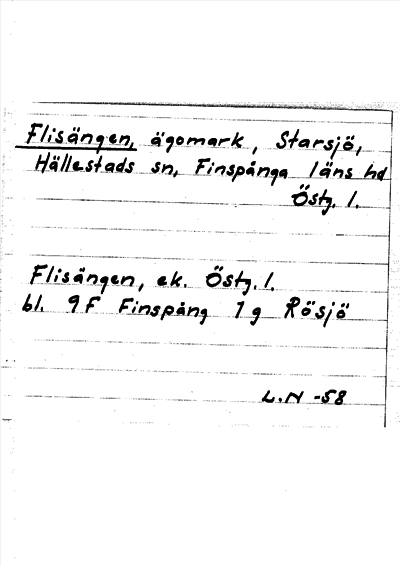 Flisängen, ägomark, Starsjö,
Hällestads sn, Finspånga läns hd
Östg. l.
Flisängen, ek. Östg. l.
bl. 9F Finspång 7g Rösjö
L.N -58